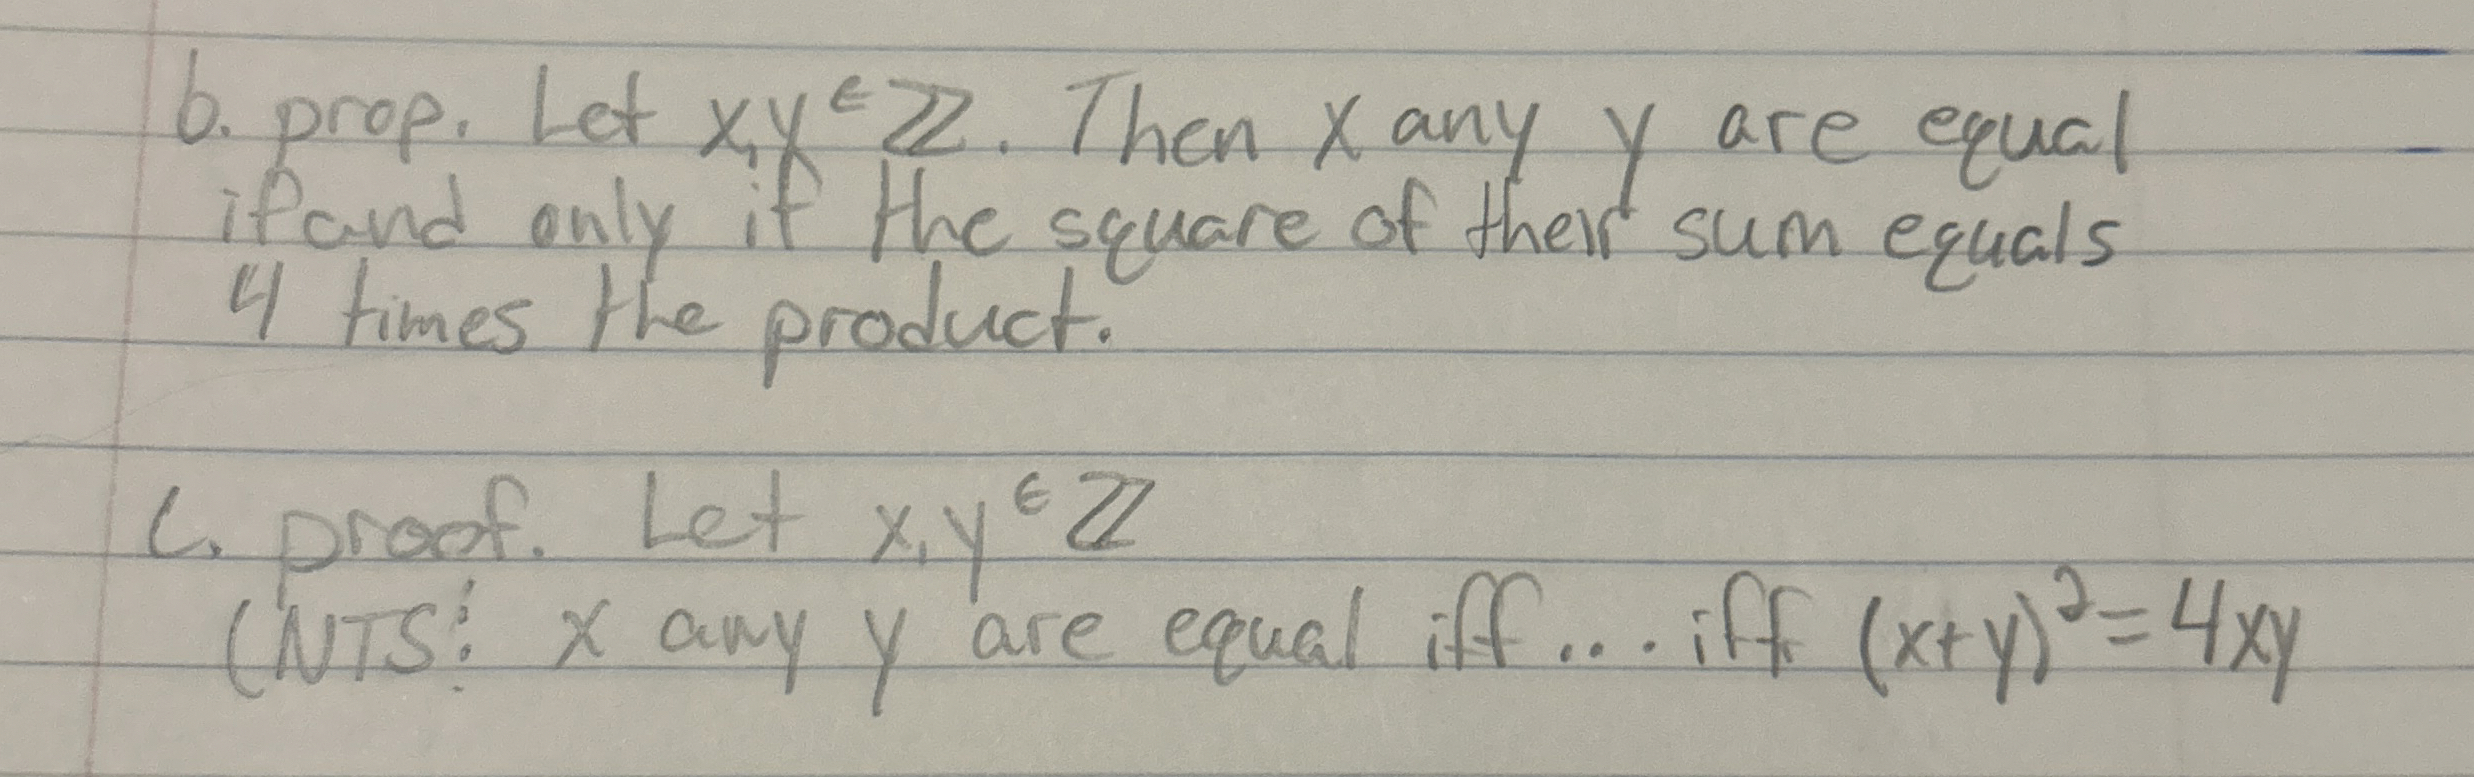 b. prop. Let x,y ∈ ℤ. Then x any y are equal
if and only if the square of their sum equals
4 times the product.
c. proof. Let x,y ∈ ℤ
(NTS: x any y are equal iff... iff (x+y)²=4xy